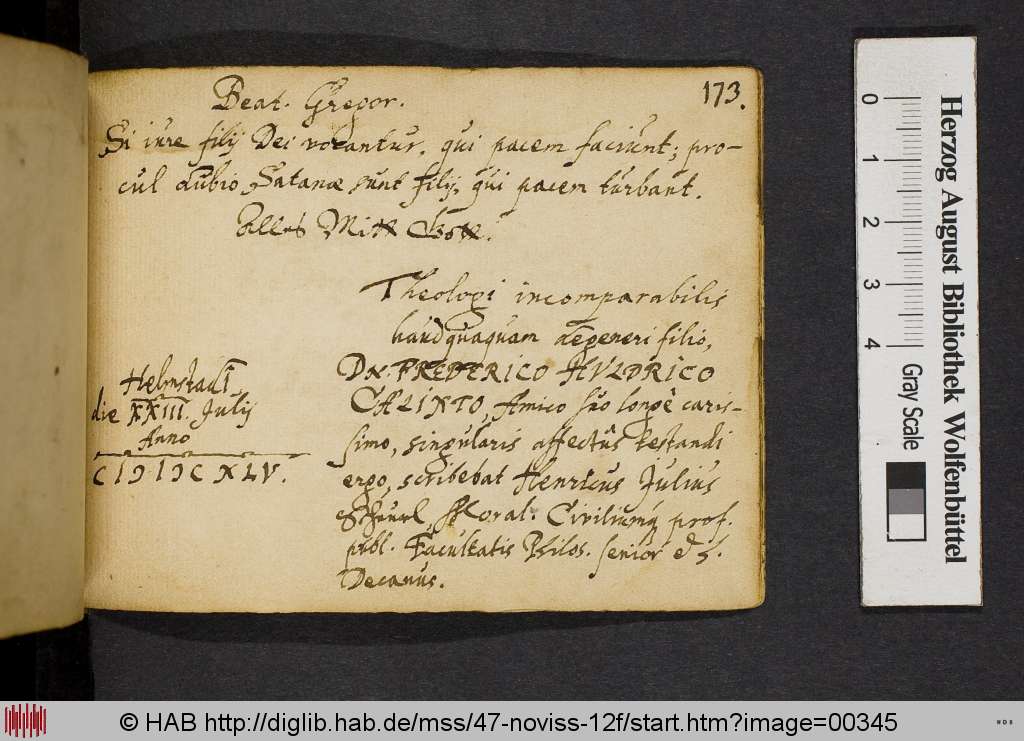 173.
Beat. Gregor.
Si iure filij Dei vocantur, qui pacem faciunt; pro-
cul dubio Satanæ sunt filij, qui pacem turbant.
Alles Mitt Gott.
Theologi incomparabilis
haudquaquam degeneri filio,
DN. FREDERICO HVLDRICO
CALIXTO, Amico suo longè caris-
simo, singularis affectûs testandi
ergo, scribebat Henricus Julius
Scheurl, Moral. Civiliumq; prof.
publ. Facultatis Philos. senior &
Decanus.
Helmstadî,
die XXIII. Julij
Anno
CIƆIƆC XLV.
0
1
2
3
4
Gray Scale
Herzog August Bibliothek Wolfenbüttel
© HAB http://diglib.hab.de/mss/47-noviss-12f/start.htm?image=00345
WDB